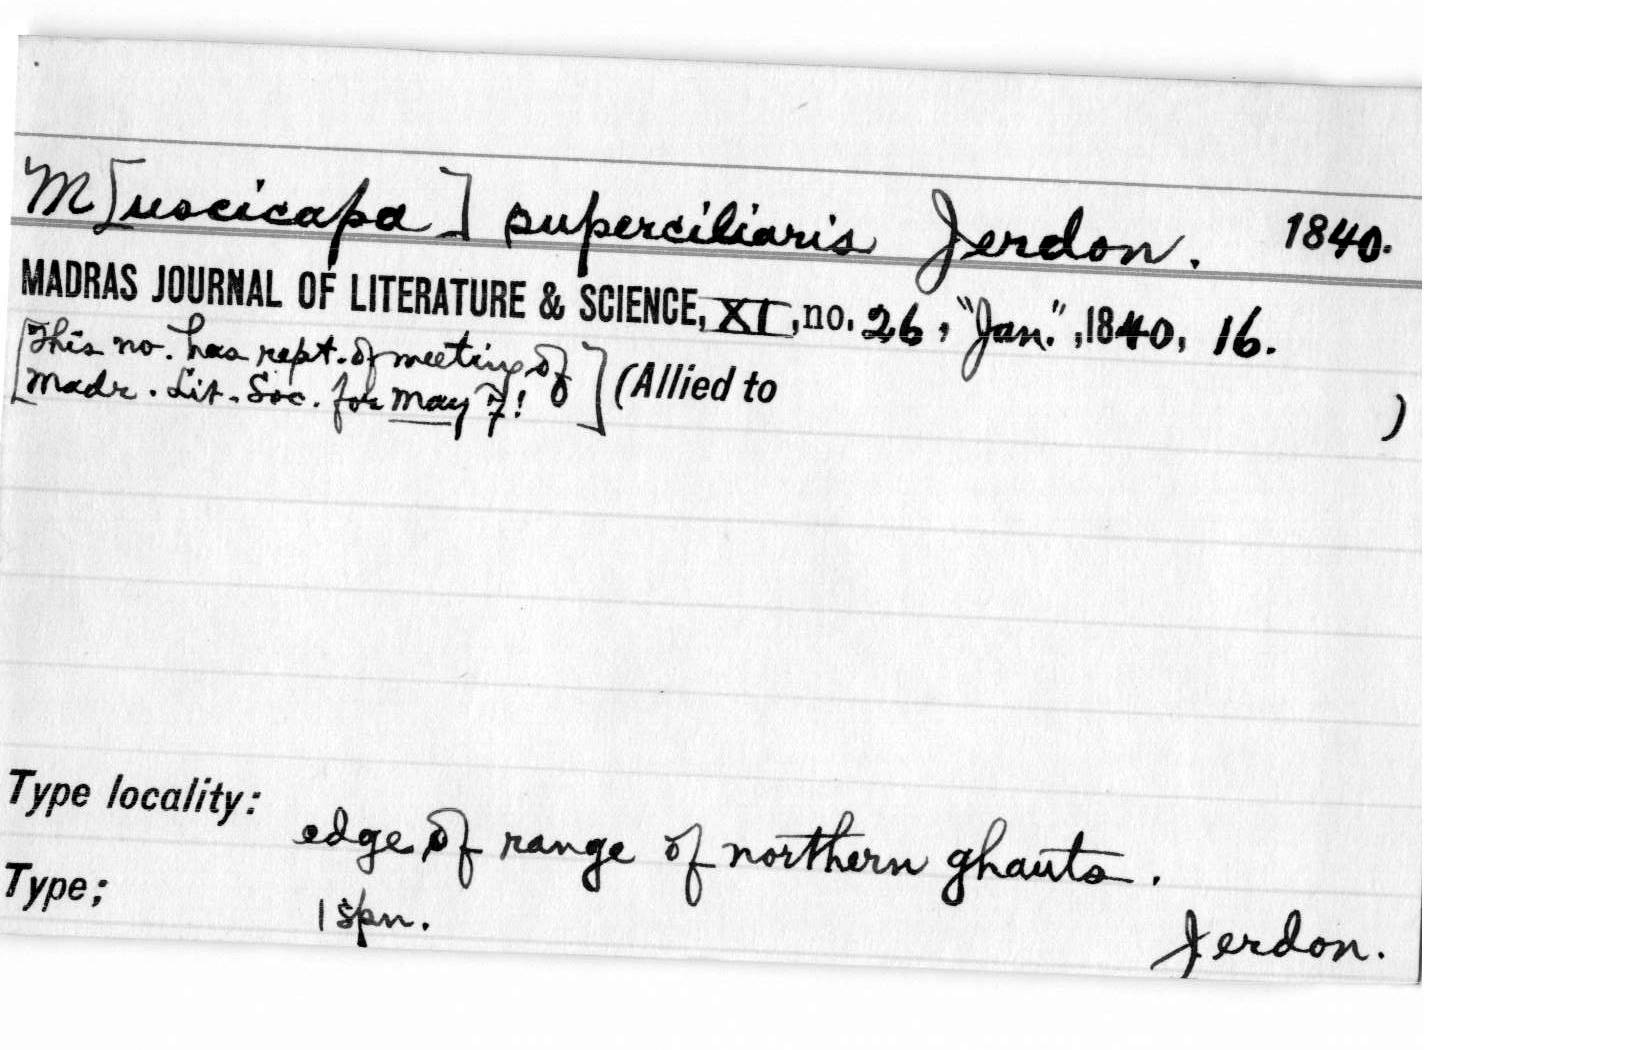 M[uscicapa] superciliaris Jerdon. 1840.
MADRAS JOURNAL OF LITERATURE & SCIENCE, XI, no. 26, "Jan.", 1840, 16.
[This no. has rept. of meeting of
Madr. Lit. Soc. for May 7!] (Allied to )
Type locality:
edge of range of northern ghauts.
Type;
1 spn.
Jerdon.